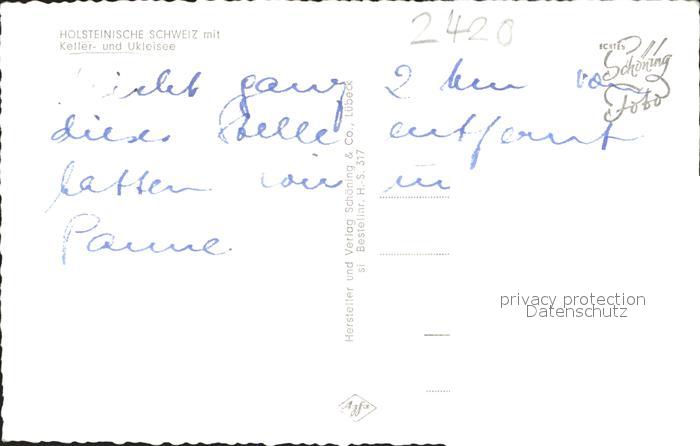 2420
HOLSTEINISCHE SCHWEIZ mit
Keller- und Ukleisee
ECHTES
Schöning
Foto
Nicht ganz 2 km von
dieser Stelle entfernt
hatten wir
Panne.
Hersteller und Verlag Schöning & Co., Lübeck
si Bestellnr. H.-S. 317
privacy protection
Datenschutz
Agfa